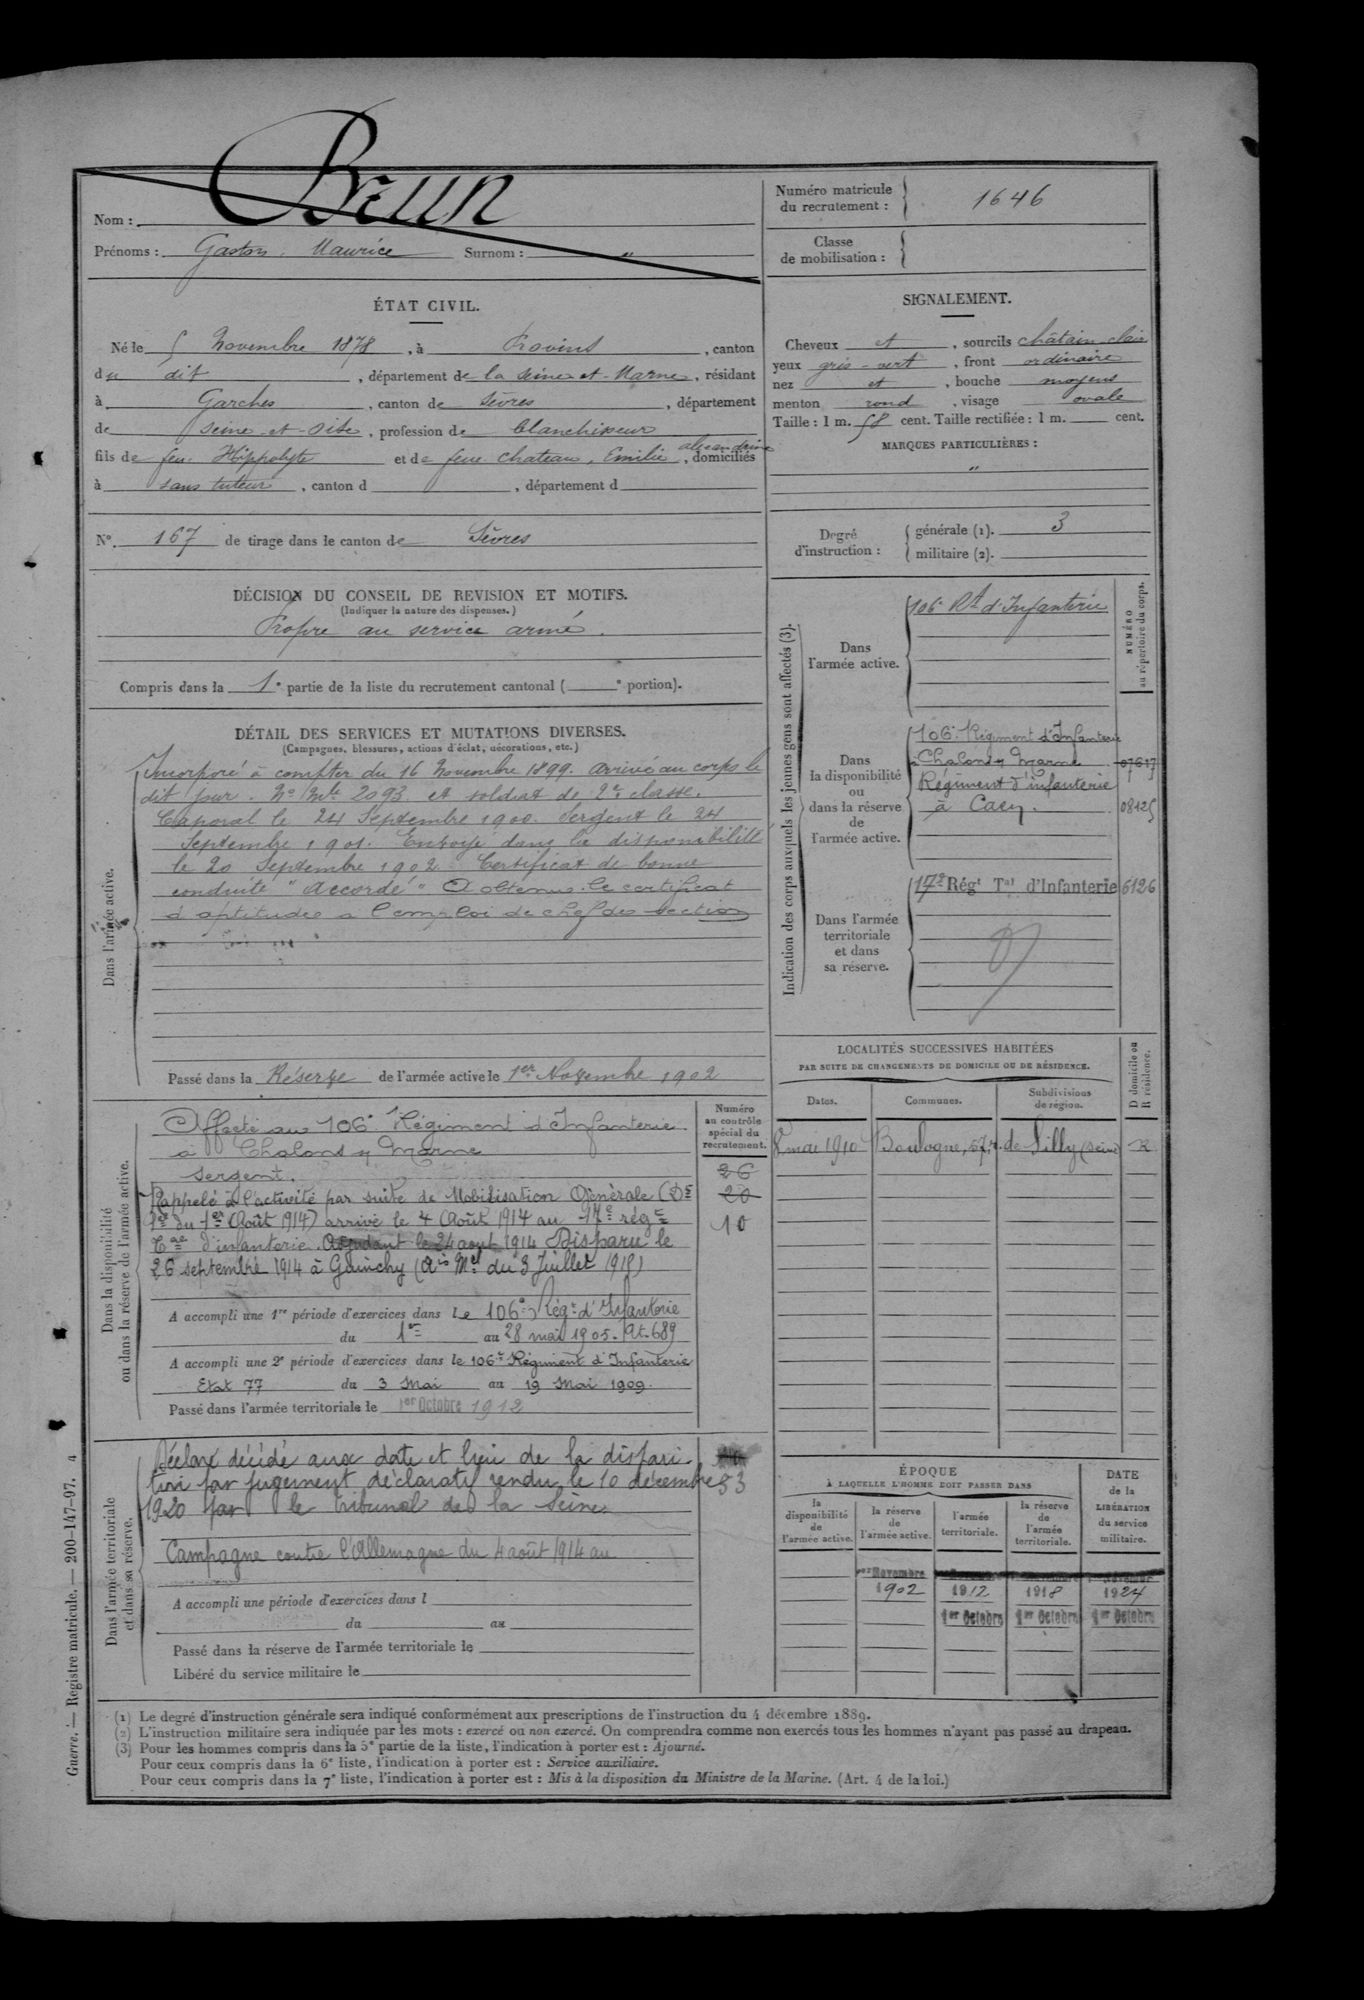 Brun
Nom :
Prénoms : Gaston, Maurice Surnom : "
Numéro matricule
du recrutement : 1646
Classe
de mobilisation :
ÉTAT CIVIL.
Né le 5 Novembre 1878, à Provins, canton
du dit, département de la Seine-et-Marne, résidant
à Garches, canton de Sèvres, département
de Seine-et-Oise, profession de blanchisseur
fils de feu Hippolyte et de feue Chateau, Emilie alexandrine, domiciliés
à sans tuteur, canton d , département d
No. 167 de tirage dans le canton de Sèvres
SIGNALEMENT.
Cheveux et , sourcils châtain clair
yeux gris-vert , front ordinaire
nez et , bouche moyens
menton rond , visage ovale
Taille : 1 m. 58 cent. Taille rectifiée : 1 m. cent.
MARQUES PARTICULIÈRES :
"
Degré
d'instruction :
générale (1). 3
militaire (2).
DÉCISION DU CONSEIL DE REVISION ET MOTIFS.
(Indiquer la nature des dispenses.)
Propre au service armé.
Compris dans la 1e partie de la liste du recrutement cantonal ( e portion).
DÉTAIL DES SERVICES ET MUTATIONS DIVERSES.
(Campagnes, blessures, actions d'éclat, décorations, etc.)
Dans l'armée active.
Incorporé à compter du 16 Novembre 1899. Arrivé au corps le
dit jour. No Mle 2093 et soldat de 2e classe.
Caporal le 24 Septembre 1900. Sergent le 24
Septembre 1901. Envoyé dans la disponibilité
le 20 Septembre 1902. Certificat de bonne
conduite "Accordé" A obtenu le certificat
d'aptitudes a l'emploi de chef de section
Passé dans la Réserve de l'armée active le 1er Novembre 1902
Indication des corps auxquels les jeunes gens sont affectés (3).
NUMÉRO
au répertoire du corps.
Dans
l'armée active.
106e Rt d'Infanterie
Dans
la disponibilité
ou
dans la réserve
de
l'armée active.
106e Régiment d'Infanterie
Chalons s/ Marne 07617
Régiment d'infanterie
à Caen. 08125
Dans l'armée
territoriale
et dans
sa réserve.
17e Régt Tal d'Infanterie 6126
LOCALITÉS SUCCESSIVES HABITÉES
PAR SUITE DE CHANGEMENTS DE DOMICILE OU DE RÉSIDENCE.
D domicile ou
R résidence.
Dates.
Communes.
Subdivisions
de région.
8 mai 1910 Boulogne, 57, r. de Silly (Seine) R
Dans la disponibilité
ou dans la réserve de l'armée active.
Numéro
au contrôle
spécial du
recrutement.
26
20
10
Affecté au 106e Régiment d'Infanterie
à Chalons s/ Marne
Sergent.
Rappelé à l'activité par suite de Mobilisation Générale (Dt
Pel du 1er Août 1914) arrivé le 4 Août 1914 au 17e régt
Tal d'infanterie. Adjudant le 24 aout 1914 Disparu le
26 septembre 1914 à Guinchy (Avis Mel du 3 Juillet 1915)
A accompli une 1re période d'exercices dans Le 106e Régt d'Infanterie
du 1er au 28 mai 1905. At. 689
A accompli une 2e période d'exercices dans le 106e Régiment d'Infanterie
Etat 77 du 3 Mai au 19 Mai 1909.
Passé dans l'armée territoriale le 1er Octobre 1912
Dans l'armée territoriale
et dans sa réserve.
Déclaré décédé aux date et lieu de la dispari-
tion par jugement déclaratif rendu le 10 décembre 53
1920 par le tribunal de la Seine
Campagne contre l'Allemagne du 4 août 1914 au
A accompli une période d'exercices dans l
du au
Passé dans la réserve de l'armée territoriale le
Libéré du service militaire le
ÉPOQUE
À LAQUELLE L'HOMME DOIT PASSER DANS
DATE
de la
LIBÉRATION
du service
militaire.
la
disponibilité
de
l'armée active.
la réserve
de
l'armée active.
l'armée
territoriale.
la réserve
de
l'armée
territoriale.
1er Novembre
1902 1912 1918 1924
1er Octobre 1er Octobre 1er Octobre
Guerre. — Registre matricule. — 200-147-97. 4
(1) Le degré d'instruction générale sera indiqué conformément aux prescriptions de l'instruction du 4 décembre 1889.
(2) L'instruction militaire sera indiquée par les mots : exercé ou non exercé. On comprendra comme non exercés tous les hommes n'ayant pas passé au drapeau.
(3) Pour les hommes compris dans la 5e partie de la liste, l'indication à porter est : Ajourné.
Pour ceux compris dans la 6e liste, l'indication à porter est : Service auxiliaire.
Pour ceux compris dans la 7e liste, l'indication à porter est : Mis à la disposition du Ministre de la Marine. (Art. 4 de la loi.)